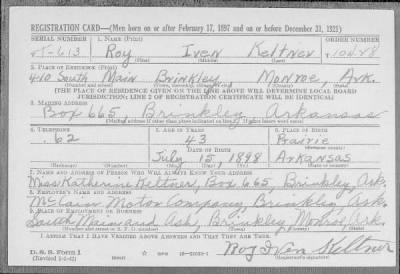 REGISTRATION CARD—(Men born on or after February 17, 1897 and on or before December 31, 1921)
SERIAL NUMBER 1. NAME (Print) ORDER NUMBER
613 Roy Iven Keltner
(First) (Middle) (Last)
2. PLACE OF RESIDENCE (Print)
410 South Main Brinkley Monroe, Ark.
(Number and street) (Town, township, village, or city) (County) (State)
[THE PLACE OF RESIDENCE GIVEN ON THE LINE ABOVE WILL DETERMINE LOCAL BOARD
JURISDICTION; LINE 2 OF REGISTRATION CERTIFICATE WILL BE IDENTICAL]
3. MAILING ADDRESS
Box 665 Brinkley Arkansas
(Mailing address if other than place indicated on line 2. If same insert word same)
4. TELEPHONE 5. AGE IN YEARS 6. PLACE OF BIRTH
62 43 Prairie
DATE OF BIRTH (Town or county)
July 15 1898 Arkansas
(Exchange) (Number) (Mo.) (Day) (Yr.) (State or country)
7. NAME AND ADDRESS OF PERSON WHO WILL ALWAYS KNOW YOUR ADDRESS
Miss Katherine Keltner, Box 665, Brinkley, Ark.
8. EMPLOYER'S NAME AND ADDRESS
McClain Motor Company, Brinkley, Ark.
9. PLACE OF EMPLOYMENT OR BUSINESS
South Main and Ash, Brinkley Monroe, Ark.
(Number and street or R. F. D. number) (Town) (County) (State)
I AFFIRM THAT I HAVE VERIFIED ABOVE ANSWERS AND THAT THEY ARE TRUE.
Roy Iven Keltner
D. S. S. Form 1
(Registrant's signature)